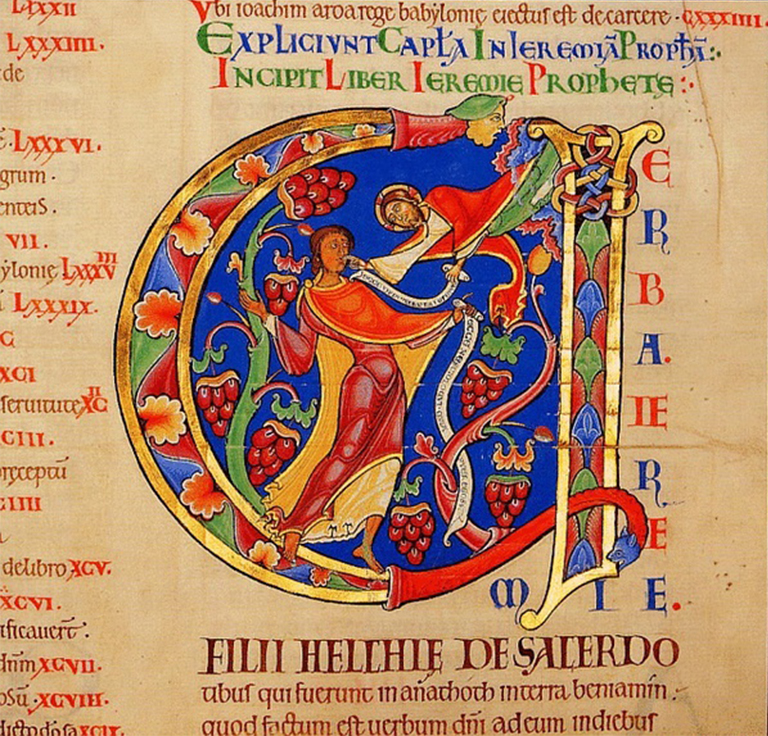 LXXXII
LXXXIIII.
de
LXXXVI.
grum.
enteis.
VII.
ylonie LXXXVIII
LXXXIX.
C
XCI
seruitute XCII
CIII.
p̄ceptū
CIIII
delibro XCV.
XCVI.
tificauert̄:
dn̄m XCVII.
osū. XCVIII.
XCIX.
Vbi ioachim aroa rege babẏlonię eiectus est de carcere. CXXXIIII.
EXPLICIVNT CAPL̄A IN IEREMIĀ PROPH̄A:.
INCIPIT LIBER IEREMIE PROPHETE:.
V
E
R
B
A.
IE
R
E
M I E.
FILII HELCHIĘ DE SACERDO
tibus qui fuerunt in anathoth in terra beniamin.
quod factum est uerbum dn̄i ad eum in diebus